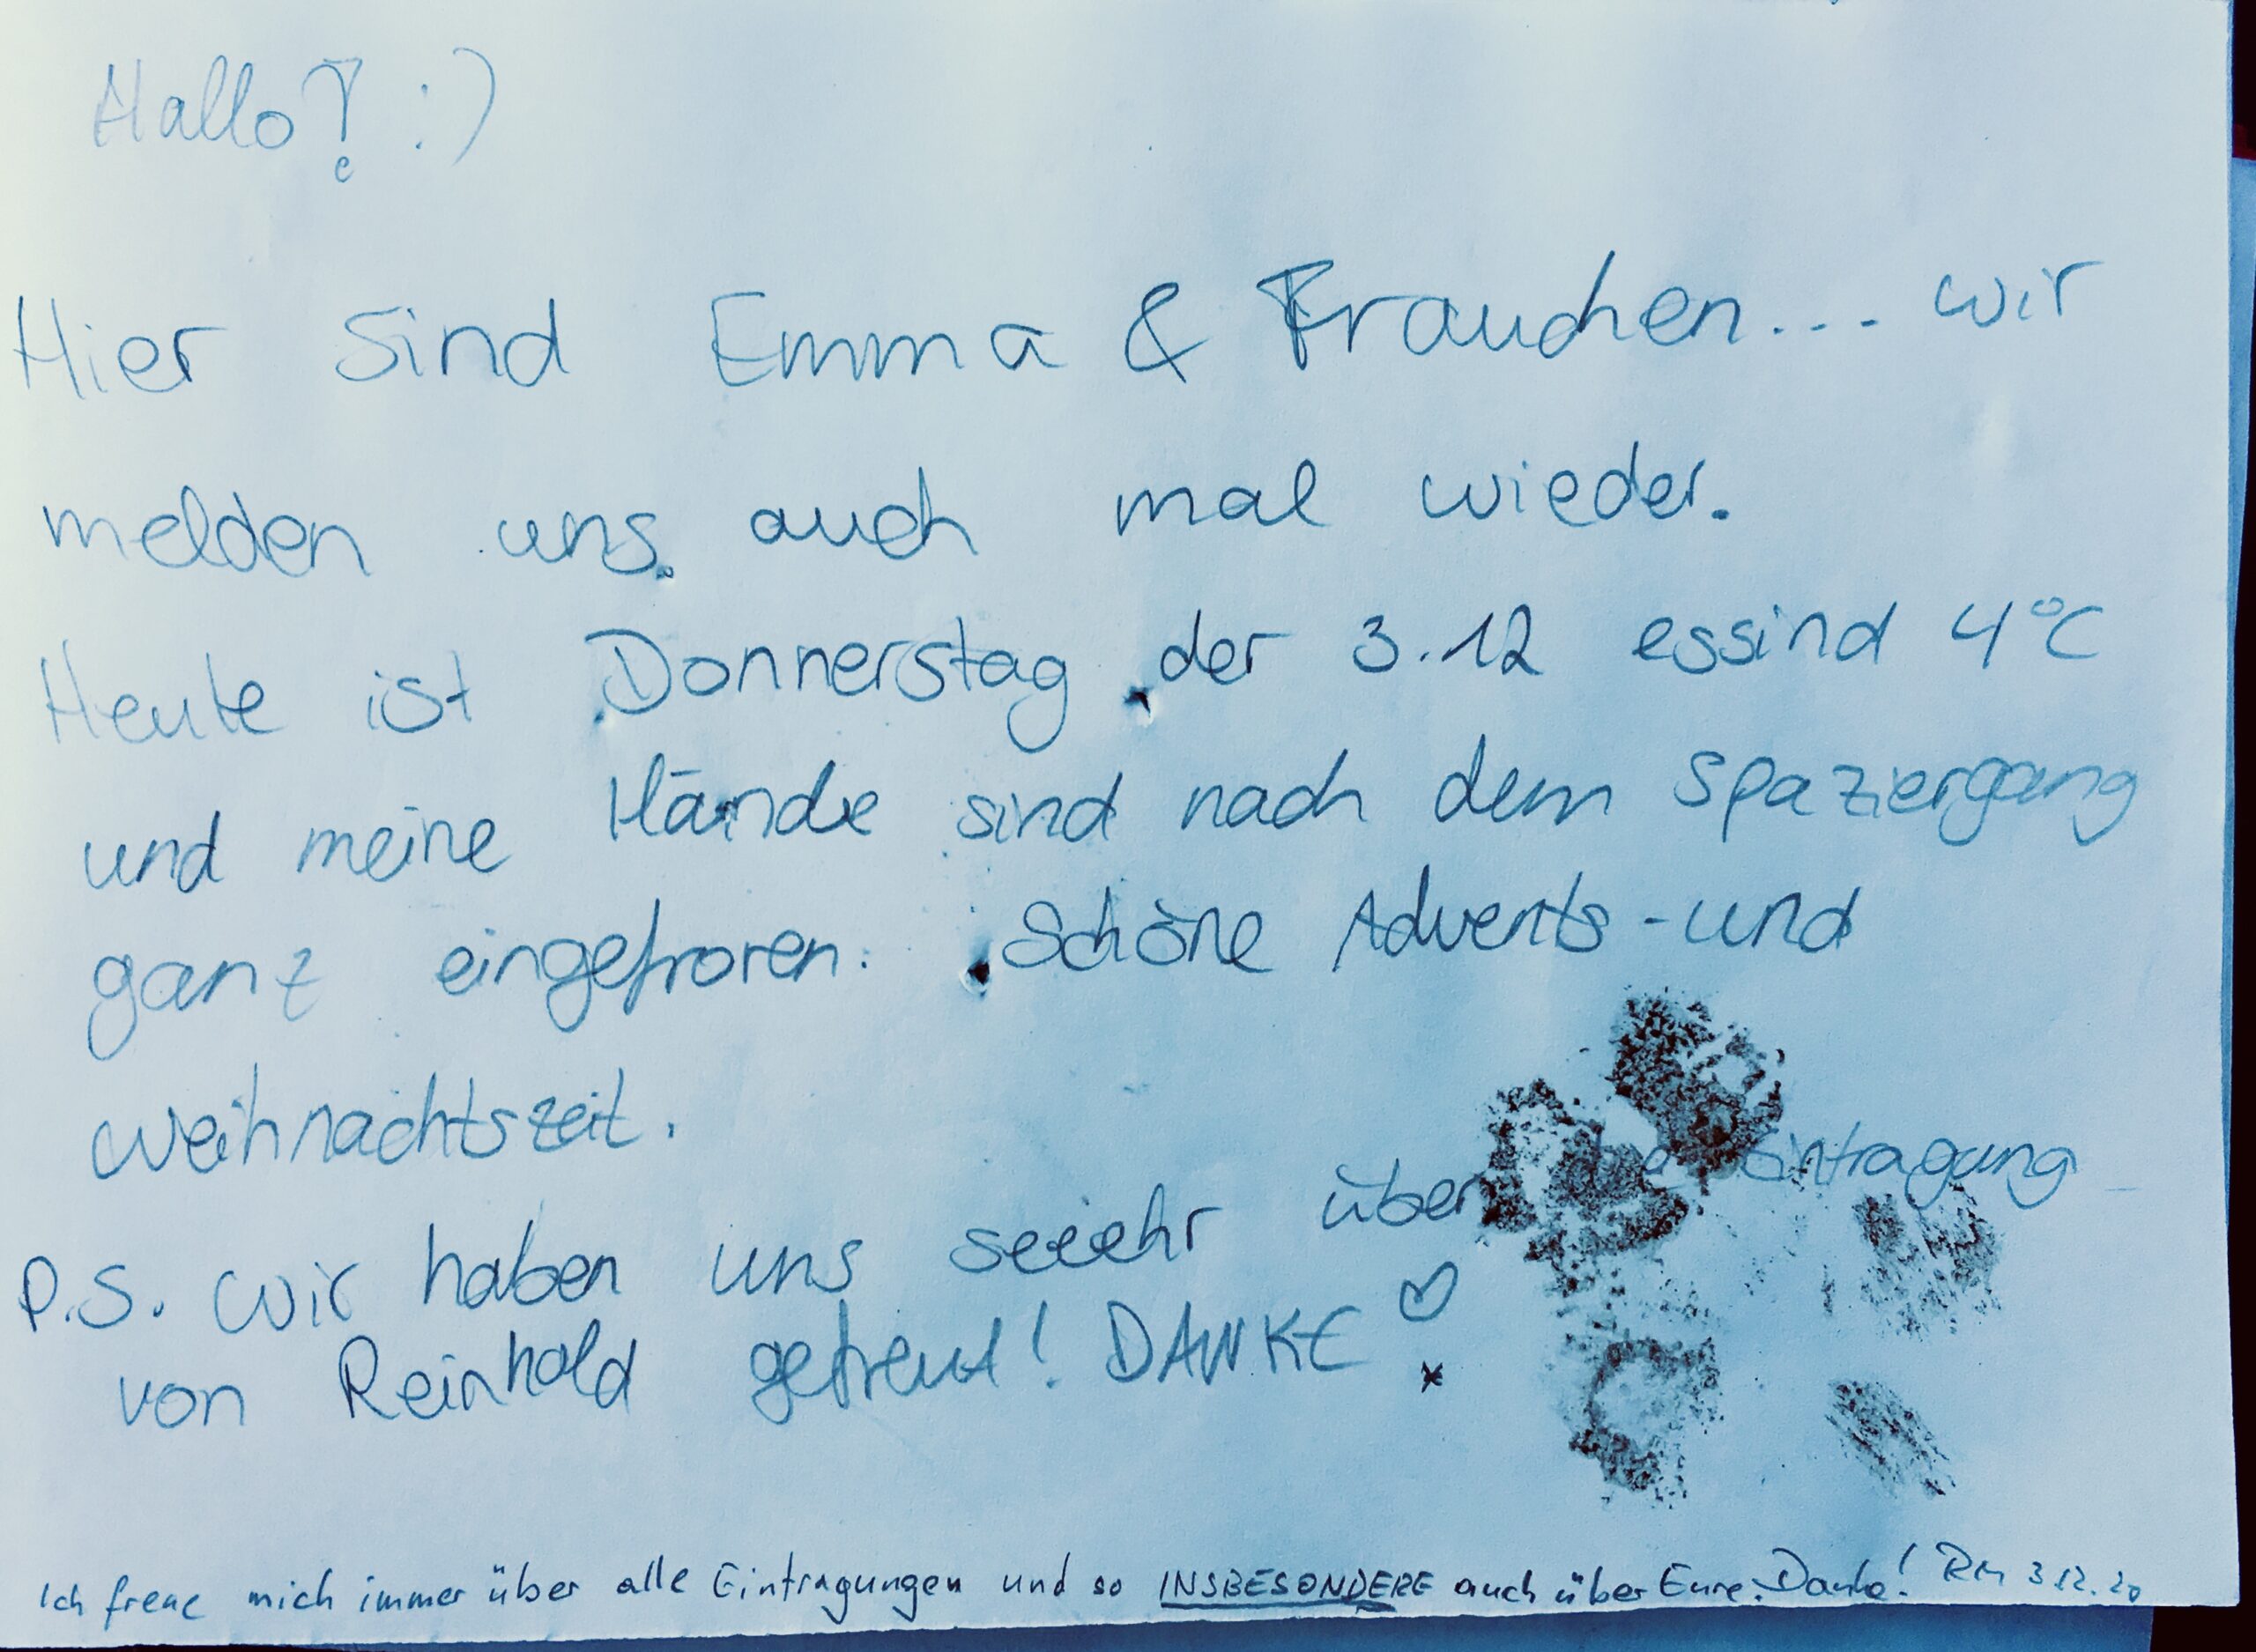 Hallo! :)
Hier sind Emma & Frauchen... wir
melden uns auch mal wieder.
Heute ist Donnerstag der 3.12 essind 4°C
und meine Hände sind nach dem Spaziergang
ganz eingefroren. Schöne Advents-und
weihnachtszeit.
P.S. wir haben uns seeehr über Eintragung
von Reinhold gefreut! DANKE ♡
Ich freue mich immer über alle Eintragungen und so INSBESONDERE auch über Eure. Danke! RM 3.12.20